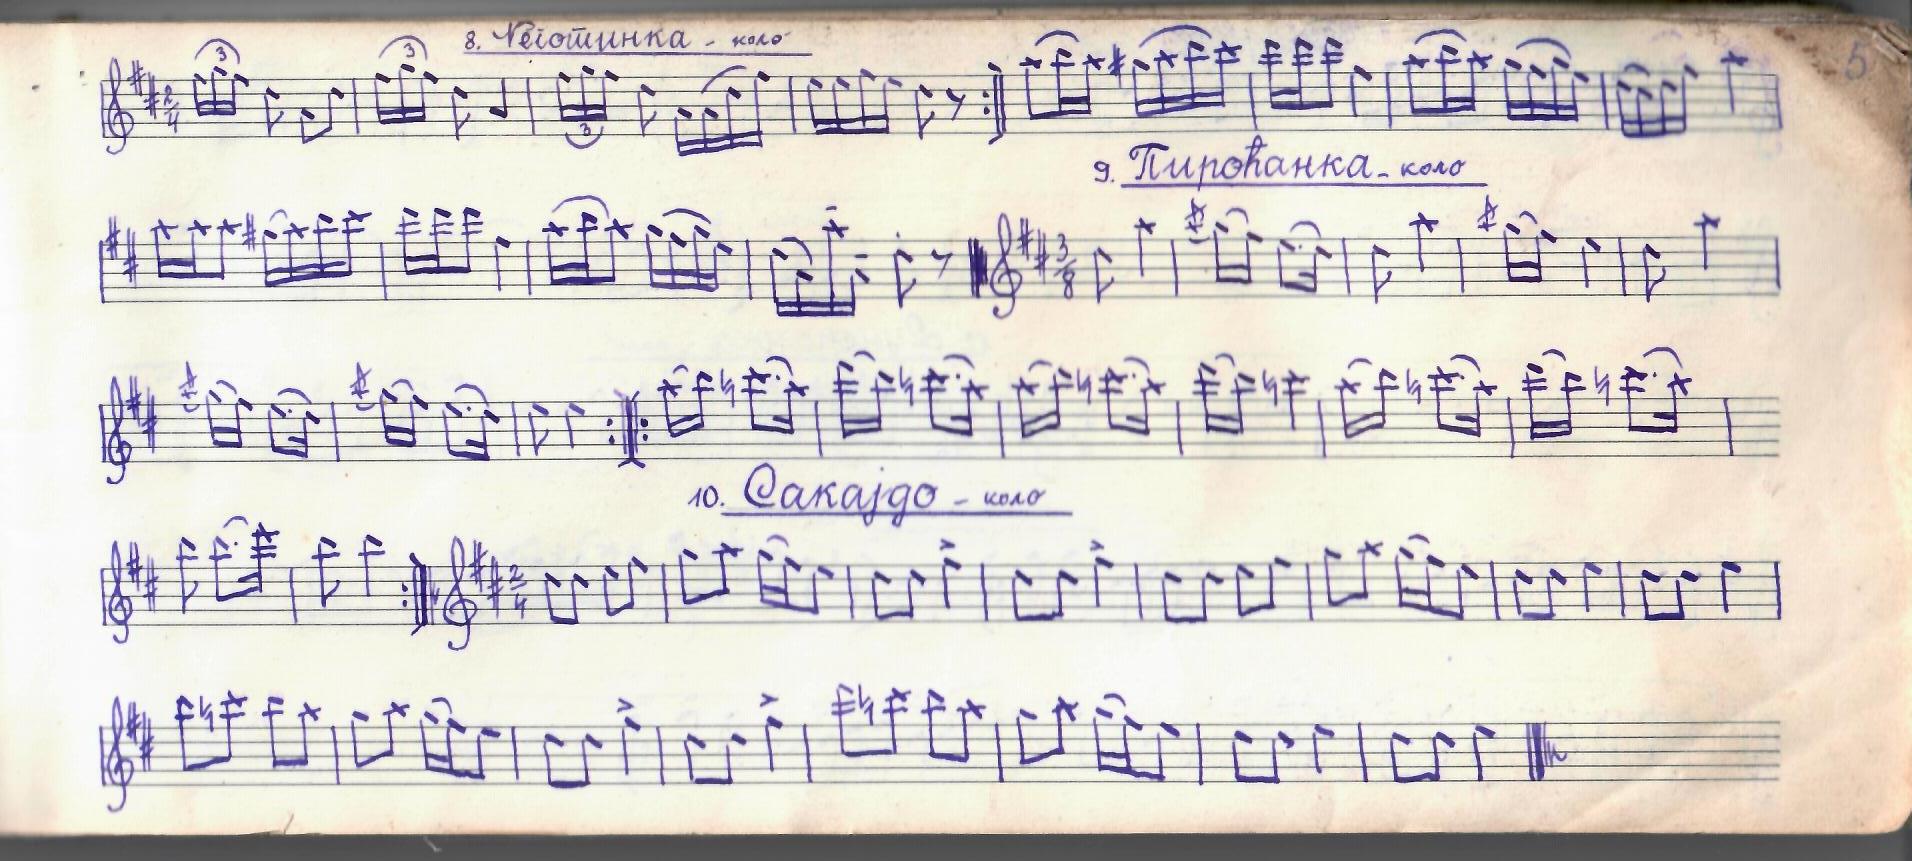 8. Неготинка - коло
5
9. Пироћанка - коло
10. Сакајдо - коло